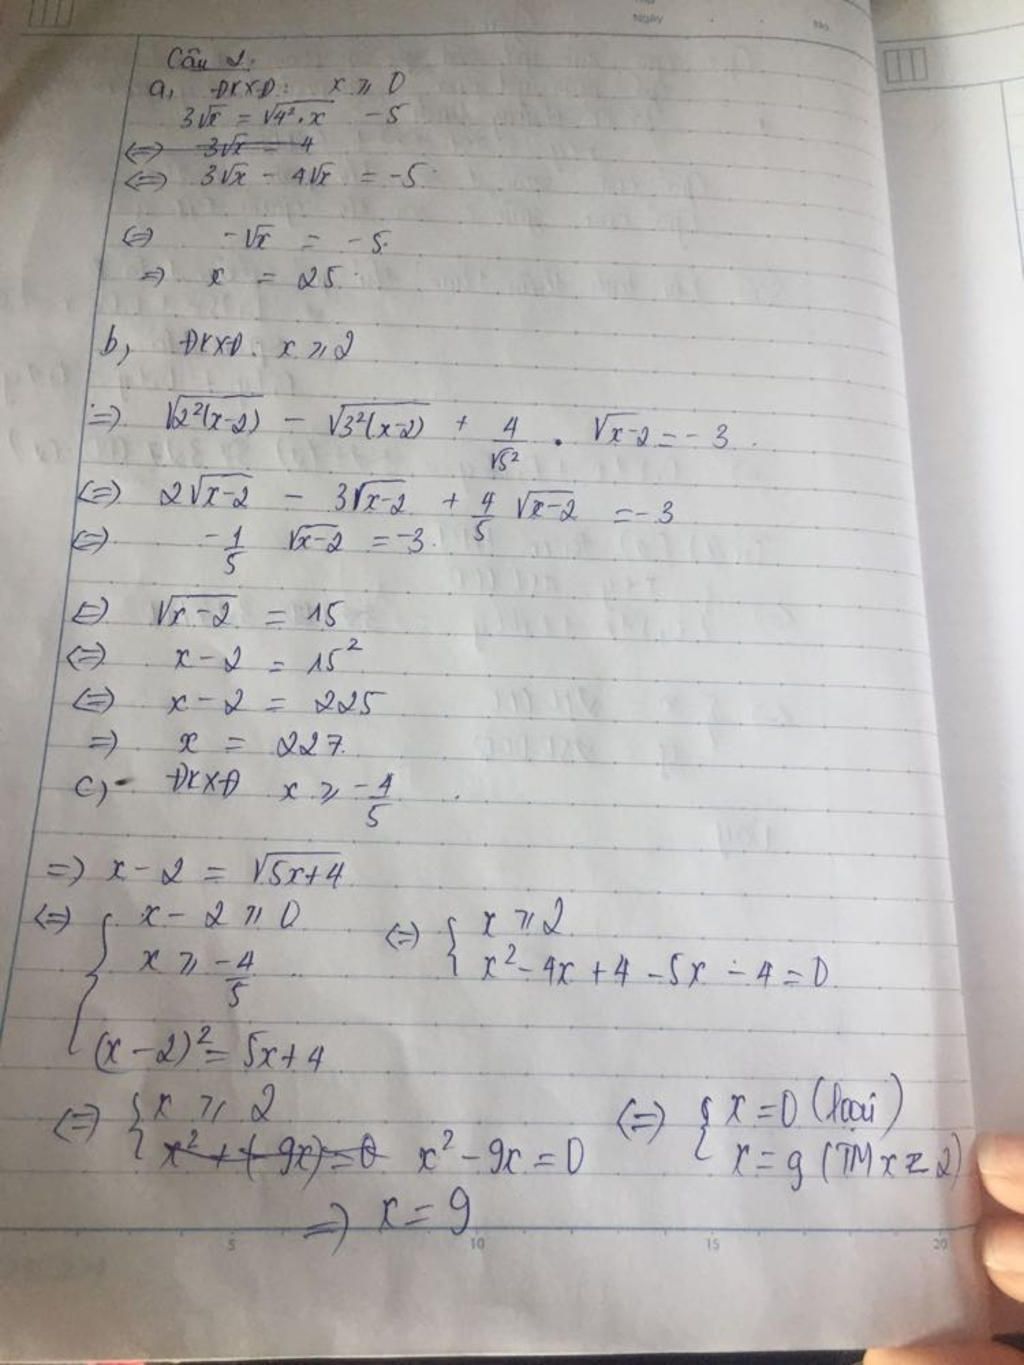 Ngày
No
Câu 1:
a, ĐKXĐ: x ≥ 0
3√x = √4².x - 5
<=> 3√x = 4
<=> 3√x - 4√x = -5
<=> -√x = -5
=> x = 25
b, ĐKXĐ: x ≥ 2
=> √2²(x-2) - √3²(x-2) + 4/√5² . √x-2 = -3
<=> 2√x-2 - 3√x-2 + 4/5 √x-2 = -3
<=> -1/5 √x-2 = -3
<=> √x-2 = 15
<=> x-2 = 15²
<=> x-2 = 225
=> x = 227
c, ĐKXĐ x ≥ -4/5
=> x-2 = √5x+4
<=> { x-2 ≥ 0 <=> { x ≥ 2
x ≥ -4/5 x²-4x+4-5x-4=0
(x-2)² = 5x+4
<=> { x ≥ 2 <=> { x=0 (loại)
x²+(-9x)=0 x²-9x=0 x=9 (TM x≥2)
=> x=9
5 10 15 20